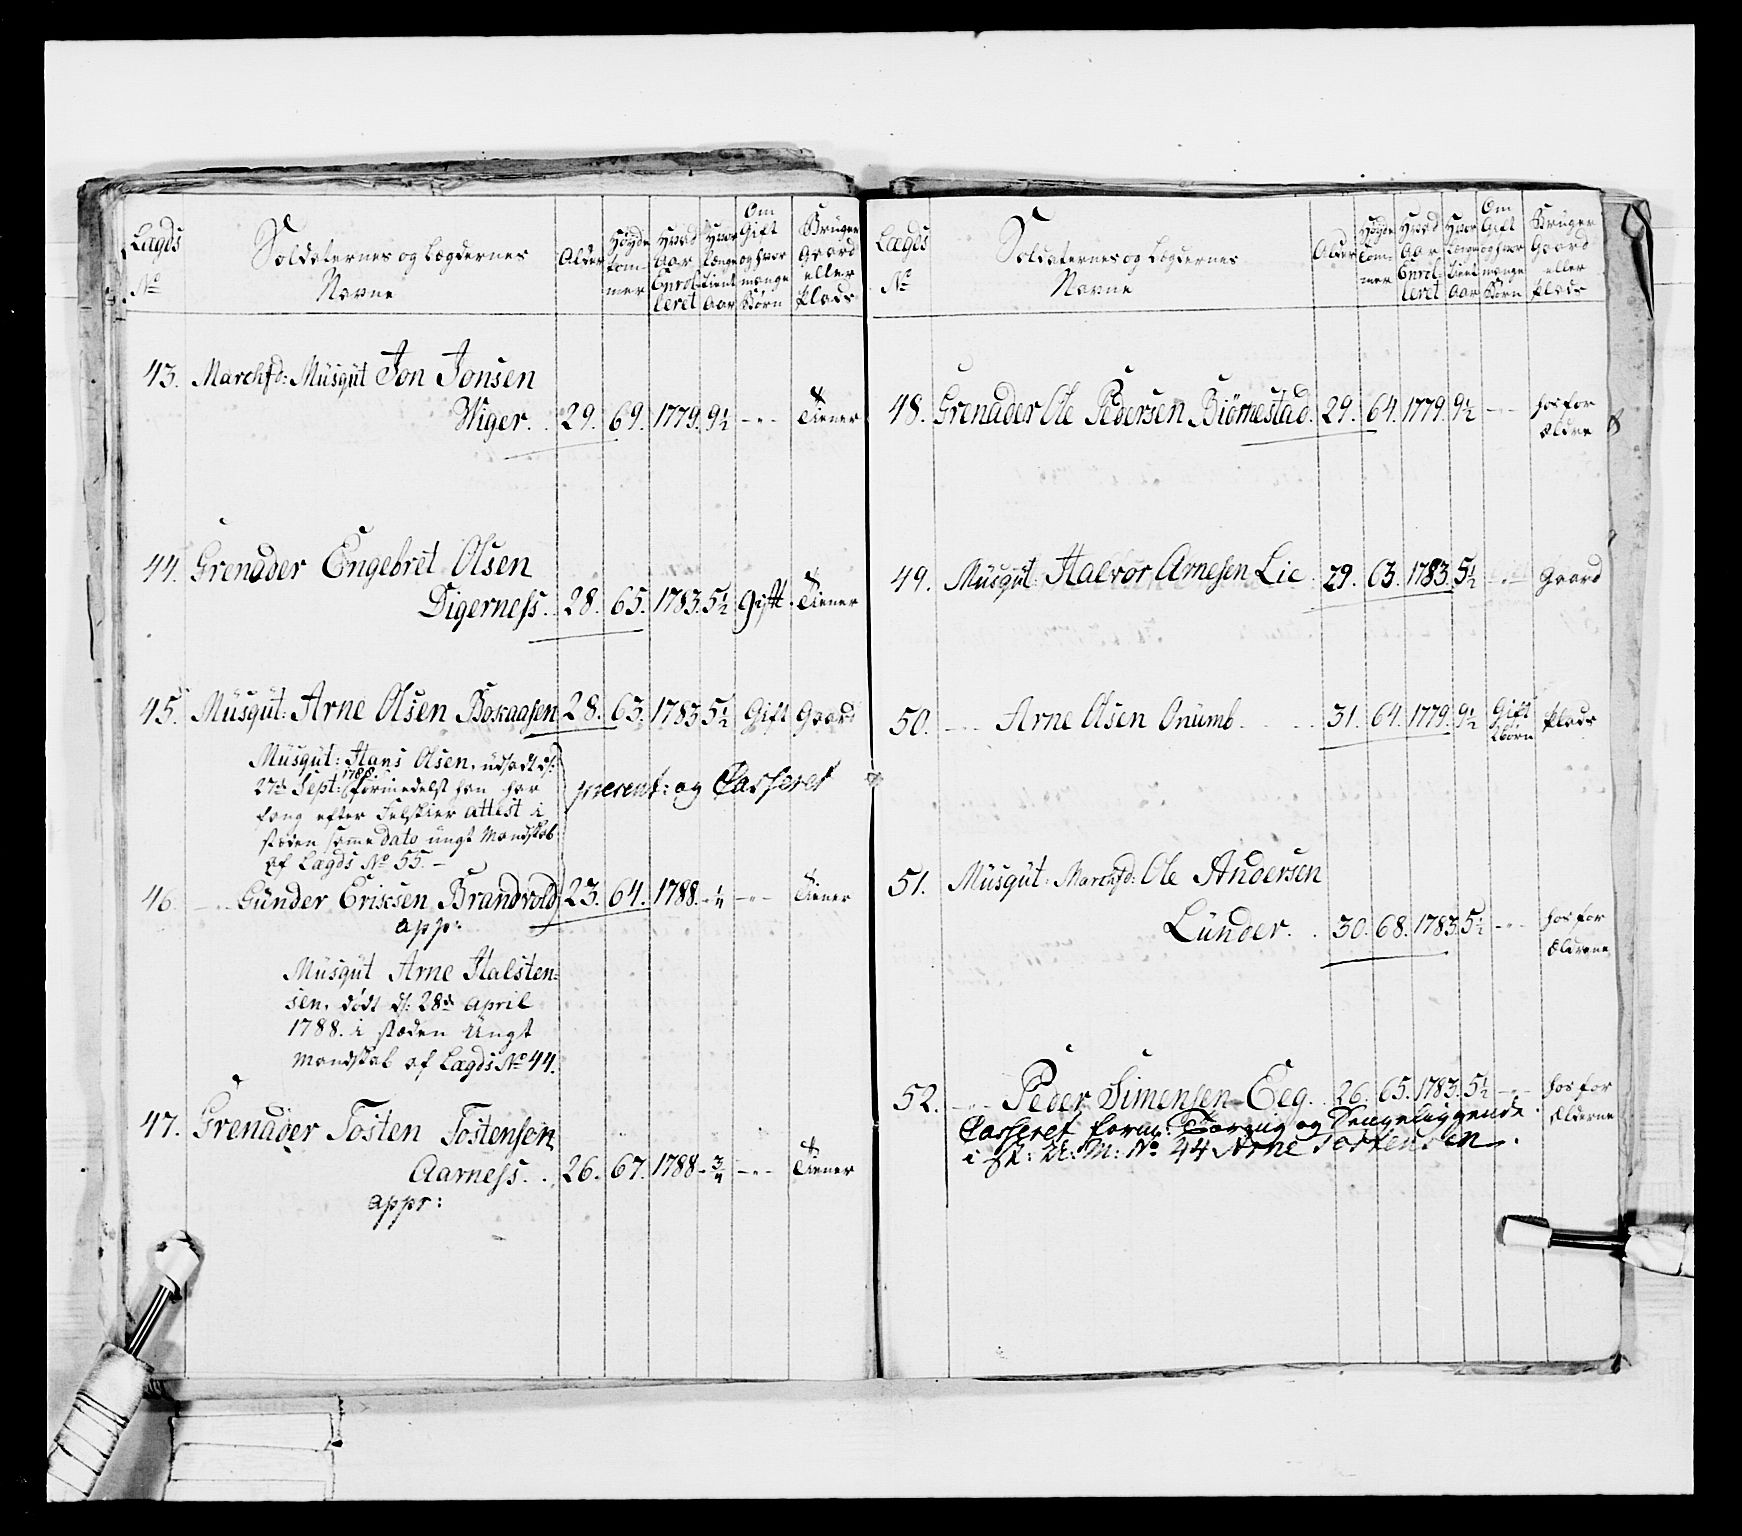 Lægds
No
Soldaternes og Lægdernes
Navne
Alder
Høyde
tom-
mer
Hvad
Aar
Enrol-
leret
Hvor
længe
tient
Aar
Om
Gift
og hvor
mange
Børn
Bruger
Gaard
eller
Plads
43. Marchfd: Müsqüt Jon Jonsen
Wiger. 29. 69. 1779. 9½ -"- Tiener
44. Grenader Engebret Olsen
Digerness. 28. 65. 1783. 5½ Gift. Tiener
45. Müsqüt: Arne Olsen Baskaasen 28. 63. 1783 5½ Gift Gaard
Müsqüt: Hans Olsen, udsadt d:
27de Sept: 1788 formedelst han har
lang efter Feltskier attest i
stæden samme dato üngt Mandskab
af Lægds No 55. -
present: og Casseret
46. - Günder Ericksen Brandvold 23. 64. 1788. - ¼ -"- Tiener
app:
Müsqüt Arne Halsten-
sen, dødt d: 28de April
1788. i stæden Üngt
Mandskab af Lægds No 44.
47. Grenader Tosten Tostensen
Aarness. 26. 67. 1788 - ¾ -"- Tiener
appr:
Lægds
No
Soldaternes og Lægdernes
Navne
Alder
Høyde
tom-
mer
Hvad
Aar
Enrol-
leret
Hvor
længe
tient
Aar
Om
Gift
og hvor
mange
Børn
Bruger
Gaard
eller
Plads
48. Grenader Ole Pedersen Biörnestad. 29. 64. 1779. 9½ -"- hos for
Ældre
49. Müsqüt: Halvor Arnesen Lie 29. 63. 1783. 5½ -"- Gaard
50. - Arne Olsen Onümb. 31. 64. 1779. 9½ Gift Plads
2 børn
51. Müsqüt: Marchfd: Ole Andersen
Lünder. 30. 68. 1783. 5½ -"- hos for
Ældrene
52. -"- Peder Simensen Eeg. 26. 65. 1783. 5½ -"- hos for
Ælderne
Casseret form: og Sengeliggende
i st: U: M: No 44 Arne Torstensen.